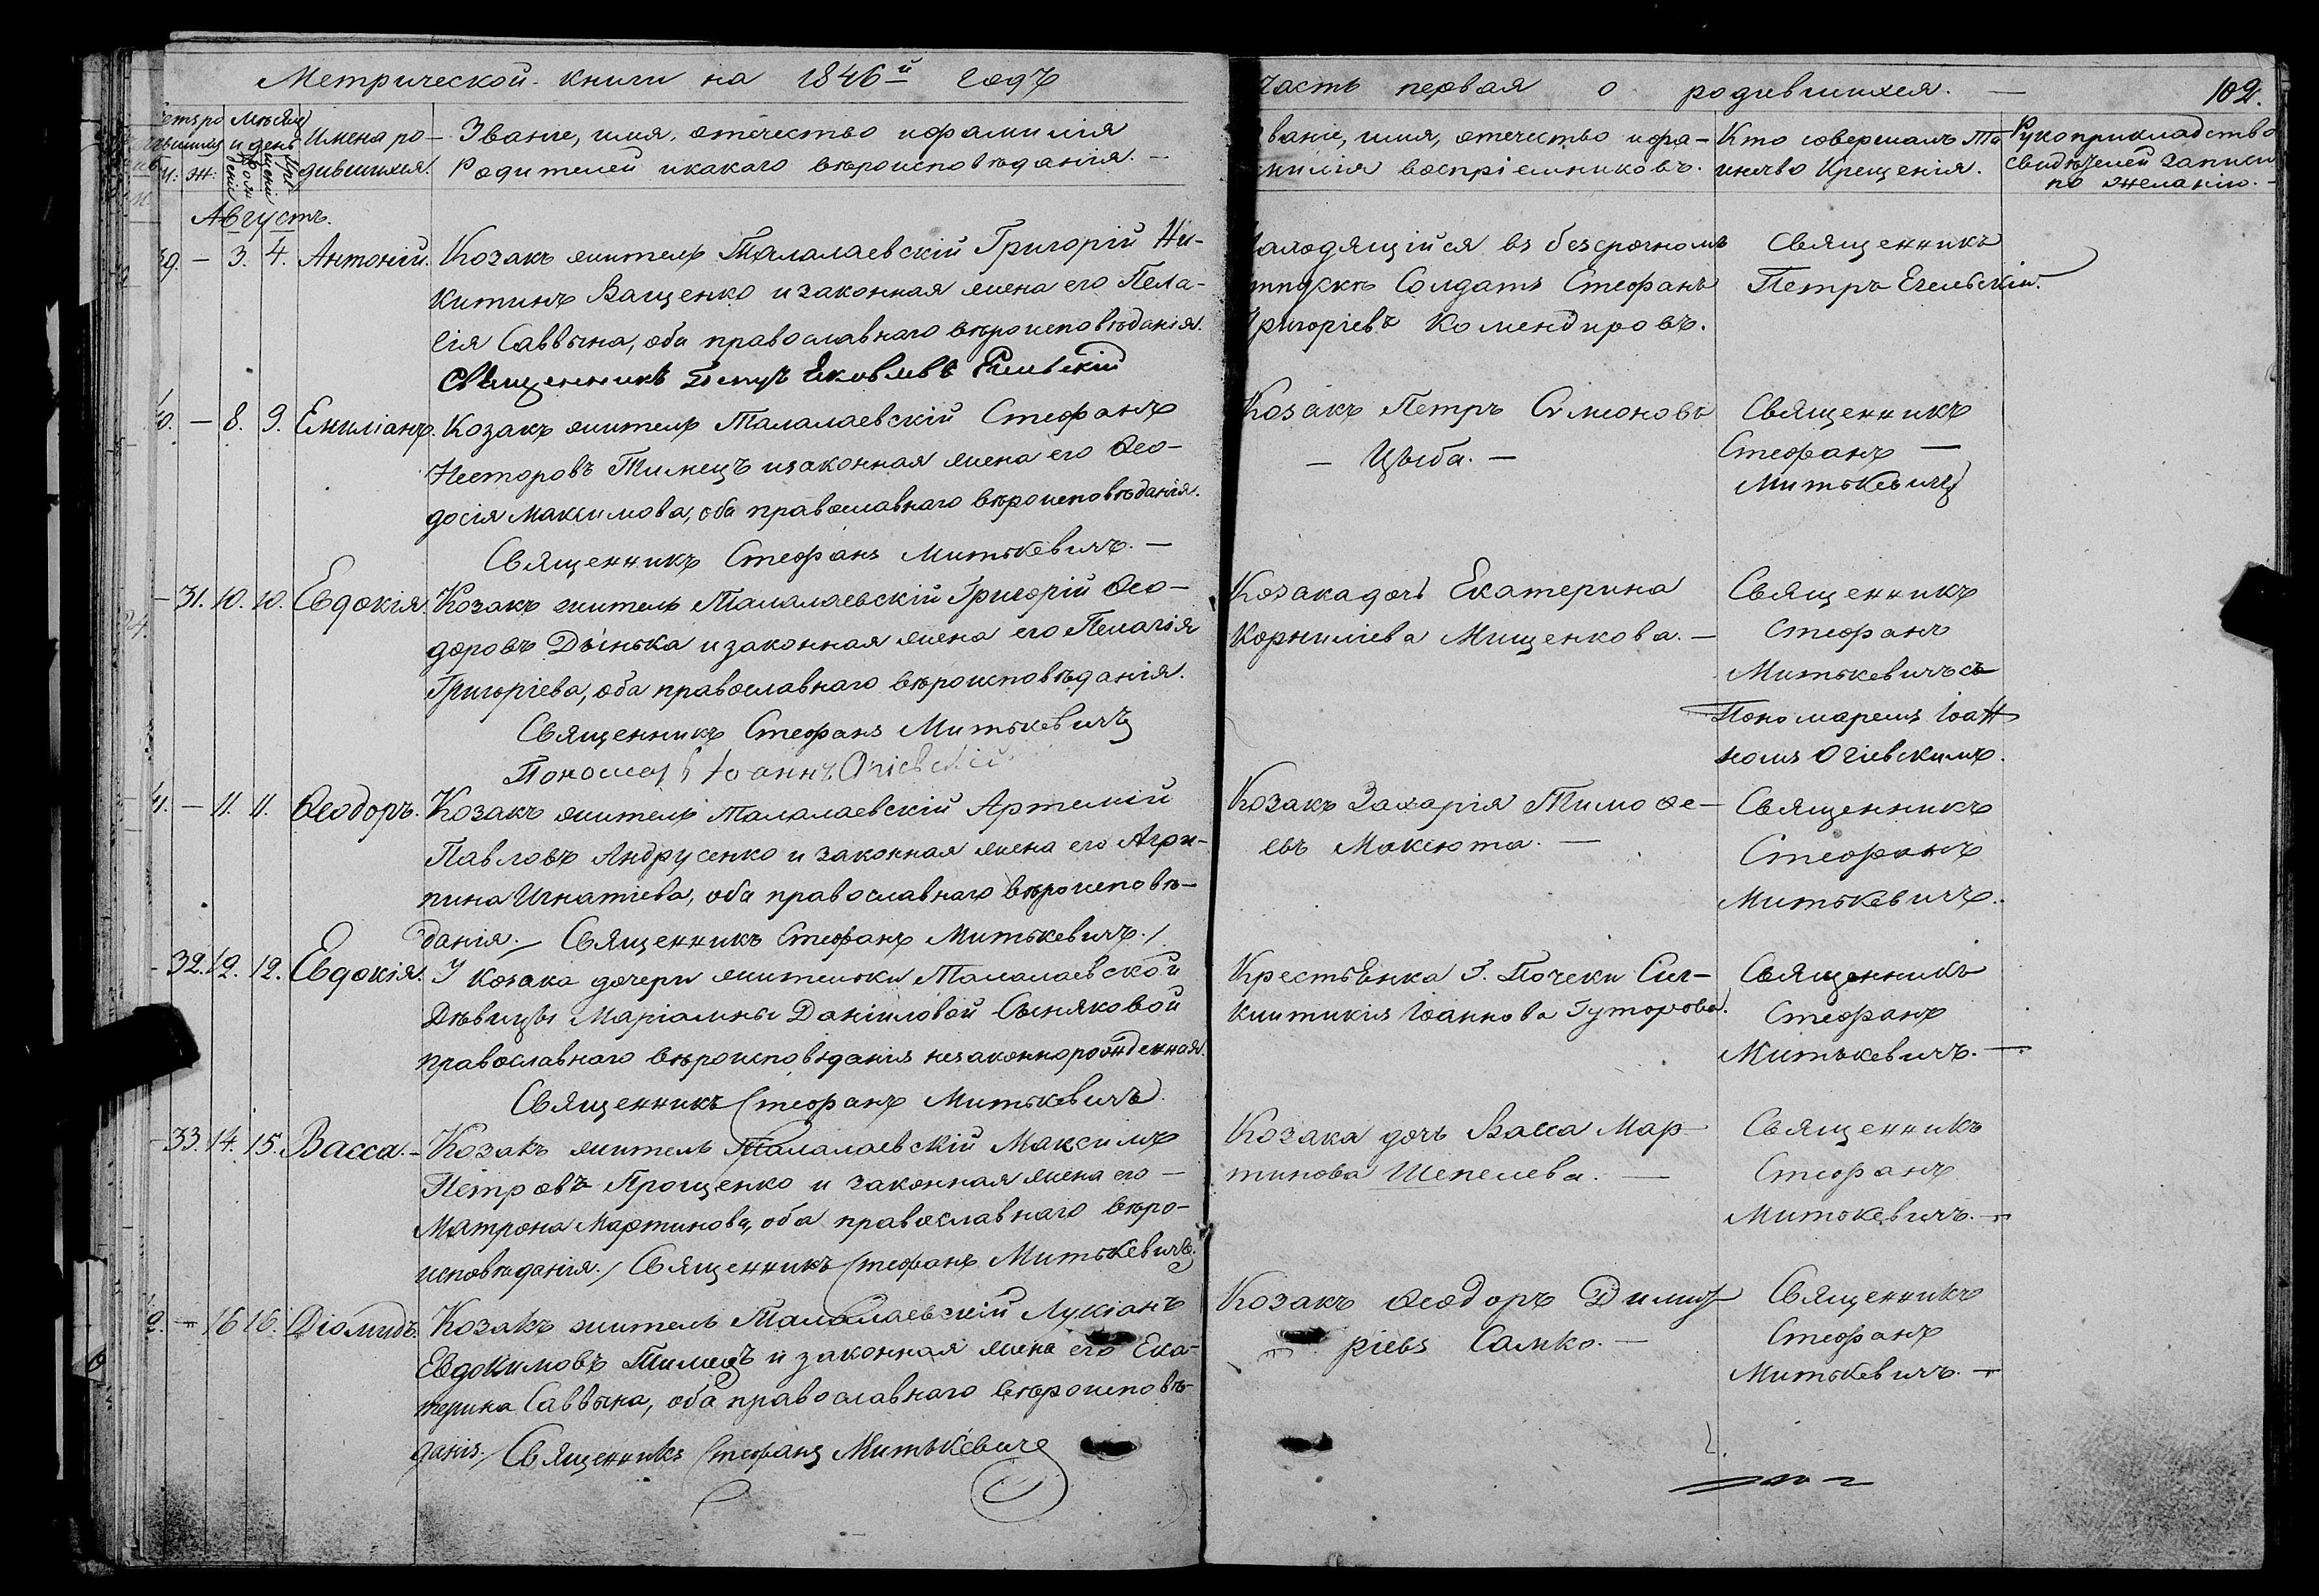 Метрической книги на 1846й годъ
Имена ро-
дившихся.
Званіе, имя, отечество и фамилія
Родителей и какаго вѣроисповѣданія. —
Августъ.
39. — 3. 4. Антоній. Козакъ житель Талалаевскій Григорій Ни-
китинъ Ващенко и законная жена его Пела-
гія Саввына, оба православнаго вѣроисповѣданія.
Священникъ Петръ Яковлевъ
40. — 8. 9. Емиліанъ. Козакъ житель Талалаевскій Стефанъ
Несторовъ и законная жена его Ѳео-
досія Максимова, оба православнаго вѣроисповѣданія.
Священникъ Стефанъ Митькевичъ. —
— 31. 10. 10. Евдокія. Козакъ житель Талалаевскій Григорій Ѳео-
доровъ Дынька и законная жена его Пелагія
Григоріева, оба православнаго вѣроисповѣданія.
Священникъ Стефанъ Митькевичъ
Пономарь Іоаннъ Огіевскій.
41. — 11. 11. Ѳеодоръ. Козакъ житель Талалаевскій Артемій
Павловъ Андрусенко и законная жена его Агри-
пина Игнатіева, оба православнаго вѣроисповѣ-
данія. / Священникъ Стефанъ Митькевичъ. /
— 32. 12. 12. Евдокія. У козака дочери жительки Талалаевской
Дѣвицы Маріамны Даніиловой Сыняковой
православнаго вѣроисповѣданія незаконнорожденная.
Священникъ Стефанъ Митькевичъ.
— 33. 14. 15. Васса. — Козакъ житель Талалаевскій Максимъ
Петровъ Прощенко и законная жена его —
Матрона Мартинова, оба православнаго вѣро-
исповѣданія. / Священникъ Стефанъ Митькевичъ.
— 16 16. Діомидъ. Козакъ житель Талалаевскій Лукіанъ
Евдокимовъ и законная жена его Ека-
терина Саввына, оба православнаго вѣроисповѣ-
данія. / Священникъ Стефанъ Митькевичъ
часть первая о родившихся. — 102.
званіе, имя, отечество и фа-
милія воспріемниковъ.
Кто совершалъ Та
инство Крещенія.
Рукоприкладство
Свидѣтелей записи
по желанію. —
Находящійся въ безсрочномъ
отпускѣ Солдатъ Стефанъ
Григоріевъ Комендировъ.
Священникъ
Петръ
Козакъ Петръ Симеоновъ
— Цыба. —
Священникъ
Стефанъ —
Митькевичъ
Козака дочь Екатерина
Корниліева Мищенкова. —
Священникъ
Стефанъ
Митькевичъ съ
Пономаремъ Іоан
номъ Огіевскимъ.
Козакъ Захарія Тимоѳе-
евъ Максюта. —
Священникъ
Стефанъ
Митькевичъ.
Крестьянка Г. Почеки
Іоаннова Гуторова.
Священникъ
Стефанъ
Митькевичъ. —
Козака дочь Васса Мар-
тинова Шепелева. —
Священникъ
Стефанъ
Митькевичъ. —
Козакъ Ѳеодоръ Димит
ріевъ Самко. —
Священникъ
Стефанъ
Митькевичъ. —